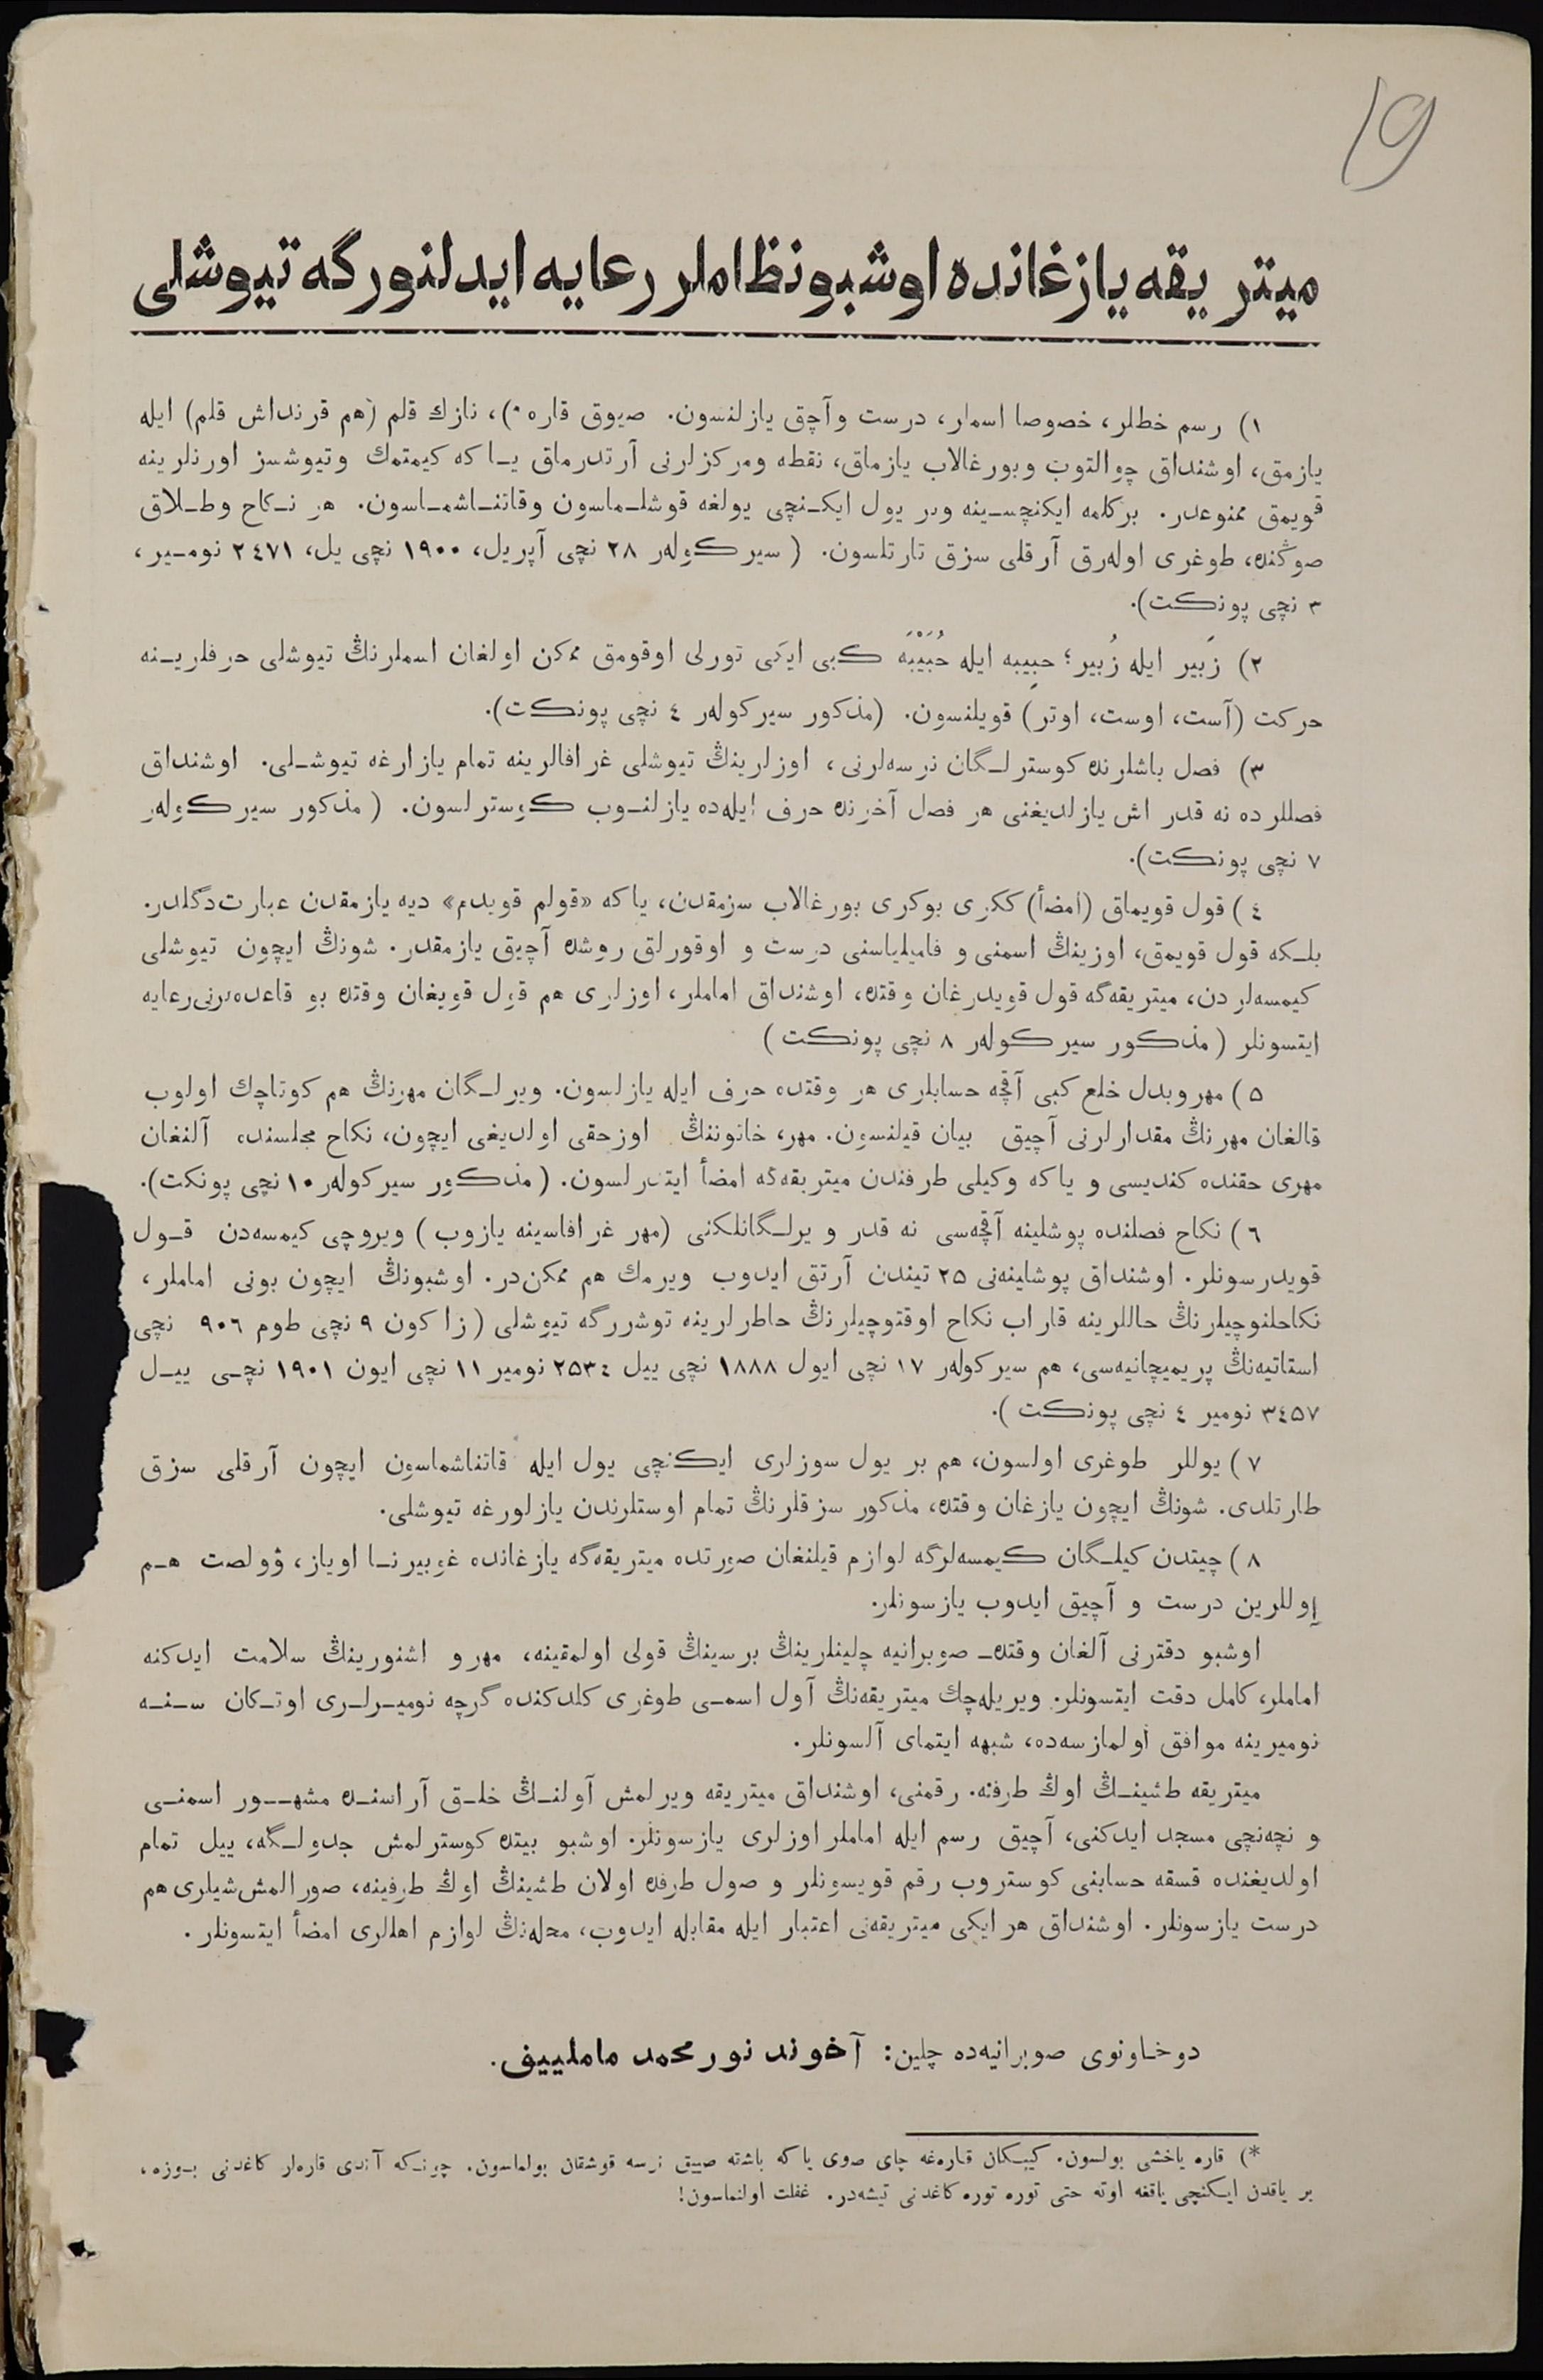 19
ميتريقه يازغانده اوشبو نظاملر رعايه ايدلنورگه تيوشلی
١) رسم خطلر، خصوصا اسملر، درست وآچق يازلنسون. صيوق قاره*)، نازك قلم (هم قرنداش قلم) ايله
يازمق، اوشنداق چوالتوب وبورغالاب يازماق، نقطه ومركزلرنی آرتدرماق يـاكه كيمتمك وتيوشسز اورنلرينه
قويمق ممنوعدر. بركلمه ايكنچسـينه وبر يول ايكـنچی يولغه قوشلـماسون وقاتنـاشمـاسون. هر نـكاح وطـلاق
صوڭنده، طوغری اولەرق آرقلی سزق تارتلسون. (سيركولەر ٢٨ نچی آپريل، ١٩٠٠ نچی يل، ٢٤٧١ نومـير،
٣ نچی پونكت).
٢) زَبير ايله زُبير؛ حبِيبه ايله حُبَيْبَه كبی ايكی تورلی اوقومق ممكن اولغان اسملرنڭ تيوشلی حرفلريـنه
حركت (آست، اوست، اوتر) قويلنسون. (مذكور سيركولەر ٤ نچی پونكت).
٣) فصل باشلرنده كوسترلـگان نرسەلرنی، اوزلرينڭ تيوشلی غرافالرينه تمام يازارغه تيوشـلی. اوشنداق
فصللرده نه قدر اش يازلديغنی هر فصل آخرنده حرف ايلەده يازلنـوب كوسترلسون. (مذكور سيركولەر
٧ نچی پونكت).
٤) قول قويماق (امضأ) ككری بوكری بورغالاب سزمقدن، ياكه «قولم قويدم» ديه يازمقدن عبارت دگلدر.
بلـكه قول قويمق، اوزينڭ اسمنی و فاميلياسنی درست و اوقورلق روشده آچيق يازمقدر. شونڭ ايچون تيوشلی
كيمسەلردن، ميتريقەگه قول قويدرغان وقتده، اوشنداق اماملر، اوزلری هم قول قويغان وقتده بو قاعدەلرنی رعايه
ايتسونلر (مذكور سيركولەر ٨ نچی پونكت)
٥) مهر وبدل خلع كبی آقچه حسابلری هر وقتده حرف ايله يازلسون. ويرلـگان مهرنڭ هم كوتاچك اولوب
قالغان مهرنڭ مقدارلرنی آچيق بيان قيلنسون. مهر، خاتوننڭ اوز حقی اولديغی ايچون، نكاح مجلسنده آلنغان
مهری حقنده كنديسی و ياكه وكيلی طرفندن ميتريقەگه امضأ ايتدرلسون. (مذكور سيركولەر ١٠ نچی پونكت).
٦) نكاح فصلنده پوشلينه آقچەسی نه قدر ويرلـگانلكنی (مهر غرافاسينه يازوب) ويروچی كيمسەدن قـول
قويدرسونلر. اوشنداق پوشلينەنی ٢٥ تيندن آرتق ايدوب ويرمك هم ممكن در. اوشبونڭ ايچون بونی اماملر،
نكاحلنوچيلرنڭ حاللرينه قاراب نكاح اوقتوچيلرنڭ خاطرلرينه توشررگه تيوشلی (زاكون ٩ نچی طوم ٩٠٦ نچی
استاتيەنڭ پريميچانيەسی، هم سيركولەر ١٧ نچی ايول ١٨٨٨ نچی ييل ٢٥٣٤ نومير ١١ نچی ايون ١٩٠١ نچـی ييـل
٣٤٥٧ نومير ٤ نچی پونكت).
٧) يوللر طوغری اولسون، هم بر يول سوزلری ايكنچی يول ايله قاتناشماسون ايچون آرقلی سزق
طارتلدی. شونڭ ايچون يازغان وقتده، مذكور سزقلرنڭ تمام اوستلرندن يازلورغه تيوشلی.
٨) چيتدن كيلـگان كيمسەلرگه لوازم قيلنغان صورتده ميتريقەگه يازغانده غوبيرنـا اوياز، ۋولصت هـم
اوللرين درست و آچيق ايدوب يازسونلر.
اوشبو دفترنی آلغان وقتدەـ صوبرانيه چلينلرينڭ برسينڭ قولی اولمقينه، مهر و اشنورينڭ سلامت ايدكنه
اماملر، كامل دقت ايتسونلر. ويريلەچك ميتريقەنڭ آول اسمـی طوغری كلدكنده گرچه نوميـرلـری اوتـكان سـنـه
نوميرينه موافق اولمازسەده، شبهه ايتمای آلسونلر.
ميتريقه طشينـڭ اوڭ طرفنه. رقمنی، اوشنداق ميتريقه ويرلمش آولنـڭ خلـق آراسنـده مشهــور اسمنـی
و نچەنچی مسجد ايدكنی، آچيق رسم ايله اماملر اوزلری يازسونلر. اوشبو بيتده كوسترلمش جدولـگه، ييل تمام
اولديغنده قسقه حسابنی كوستروب رقم قويسونلر و صول طرفده اولان طشينڭ اوڭ طرفينه، صورالمش شيلری هم
درست يازسونلر. اوشنداق هر ايكی ميتريقەنی اعتبار ايله مقابله ايدوب، محلەنڭ لوازم اهللری امضأ ايتسونلر.
دوخاونوی صوبرانيەده چلين: آخوند نورمحمد ماملييف.
*) قاره ياخشی بولسون. كيبكان قارەغه چای صوی ياكه باشته صييق نرسه قوشقان بولماسون. چونـكه آندی قارەلر كاغدنی بـوزه،
بر ياقدن ايـكنچی ياقغه اوته حتی توره توره كاغدنی تيشەدر. غفلت اولنماسون!